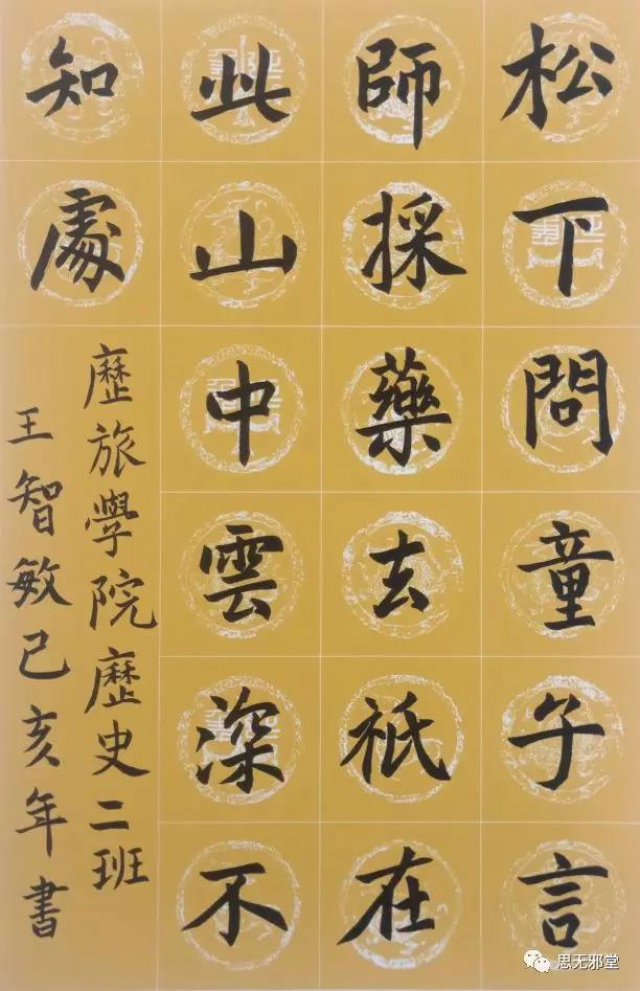 松下問童子言
師採藥去祇在
此山中雲深不
知處
歷旅學院歷史二班
王智敏己亥年書
思无邪堂